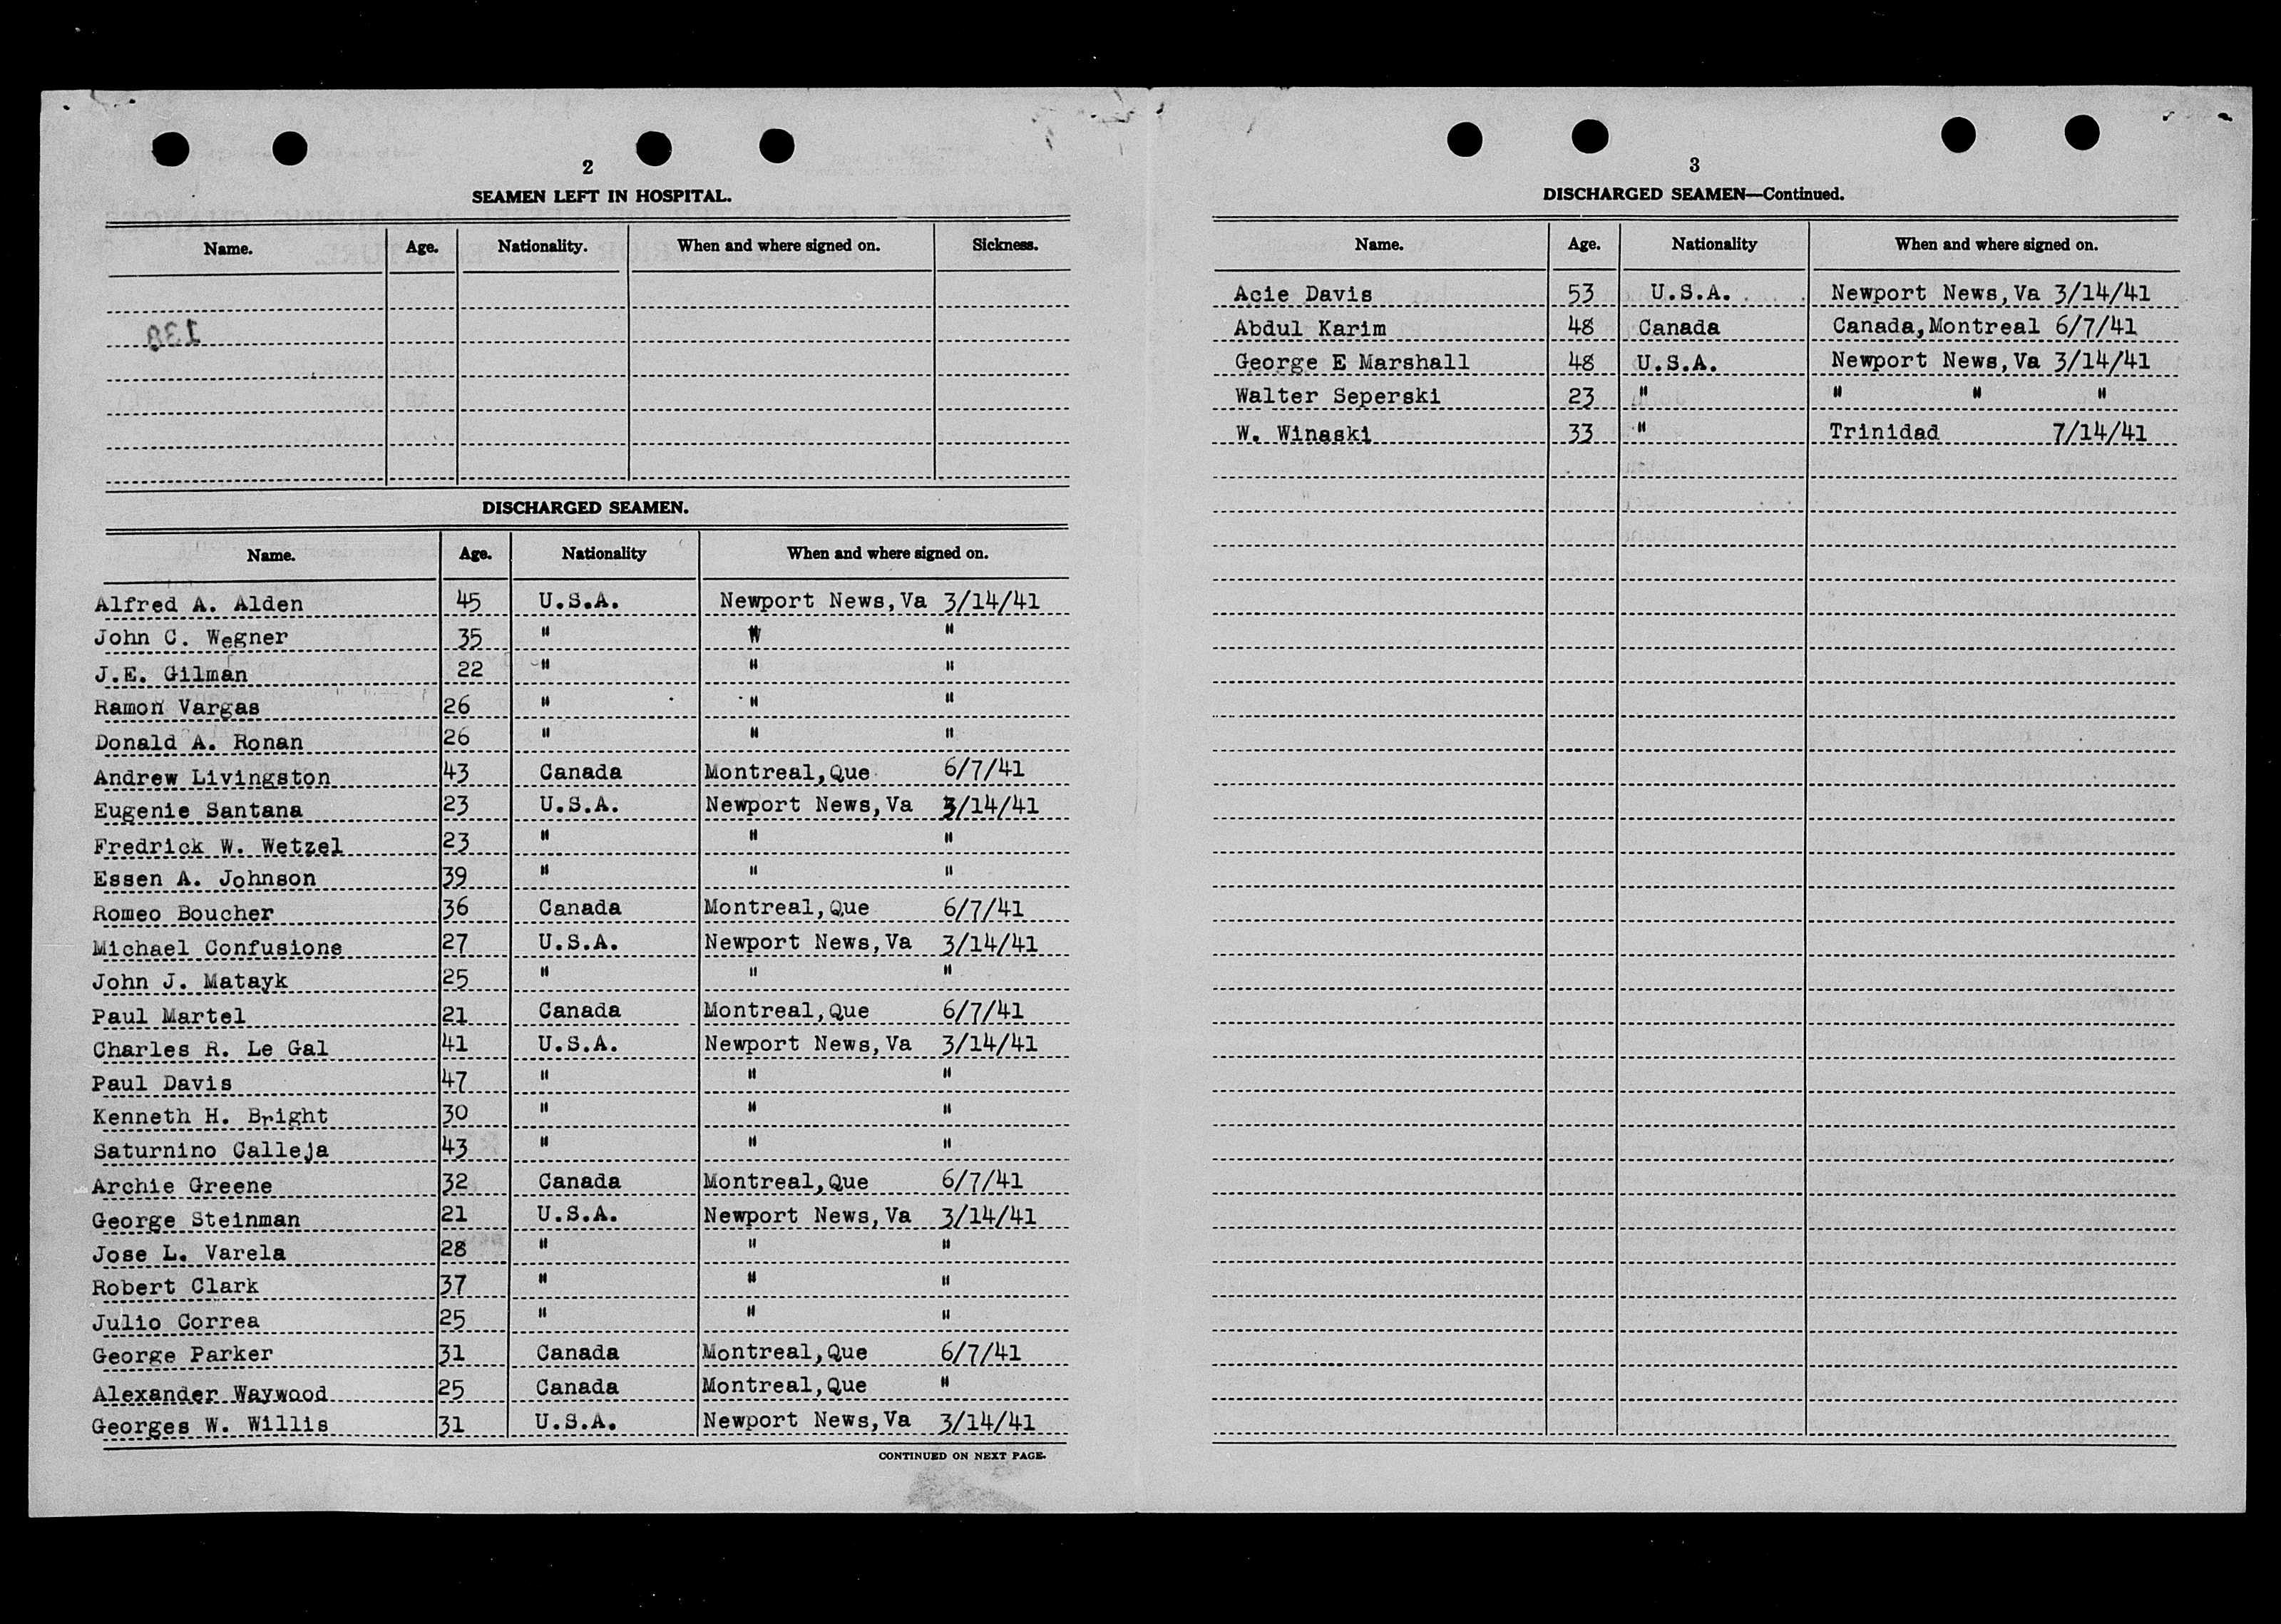 2
SEAMEN LEFT IN HOSPITAL.
Name. Age. Nationality. When and where signed on. Sickness.
138
DISCHARGED SEAMEN.
Name. Age. Nationality When and where signed on.
Alfred A. Alden 45 U.S.A. Newport News,Va 3/14/41
John C. Wegner 35 " " "
J.E. Gilman 22 " " "
Ramon Vargas 26 " " "
Donald A. Ronan 26 " " "
Andrew Livingston 43 Canada Montreal,Que 6/7/41
Eugenie Santana 23 U.S.A. Newport News,Va 3/14/41
Fredrick W. Wetzel 23 " " "
Essen A. Johnson 39 " " "
Romeo Boucher 36 Canada Montreal,Que 6/7/41
Michael Confusione 27 U.S.A. Newport News,Va 3/14/41
John J. Matayk 25 " " "
Paul Martel 21 Canada Montreal,Que 6/7/41
Charles R. Le Gal 41 U.S.A. Newport News,Va 3/14/41
Paul Davis 47 " " "
Kenneth H. Bright 30 " " "
Saturnino Calleja 43 " " "
Archie Greene 32 Canada Montreal,Que 6/7/41
George Steinman 21 U.S.A. Newport News,Va 3/14/41
Jose L. Varela 28 " " "
Robert Clark 37 " " "
Julio Correa 25 " " "
George Parker 31 Canada Montreal,Que 6/7/41
Alexander Waywood 25 Canada Montreal,Que "
Georges W. Willis 31 U.S.A. Newport News,Va 3/14/41
CONTINUED ON NEXT PAGE.
3
DISCHARGED SEAMEN—Continued.
Name. Age. Nationality When and where signed on.
Acie Davis 53 U.S.A. Newport News,Va 3/14/41
Abdul Karim 48 Canada Canada,Montreal 6/7/41
George E Marshall 48 U.S.A. Newport News,Va 3/14/41
Walter Seperski 23 " " " "
W. Winaski 33 " Trinidad 7/14/41